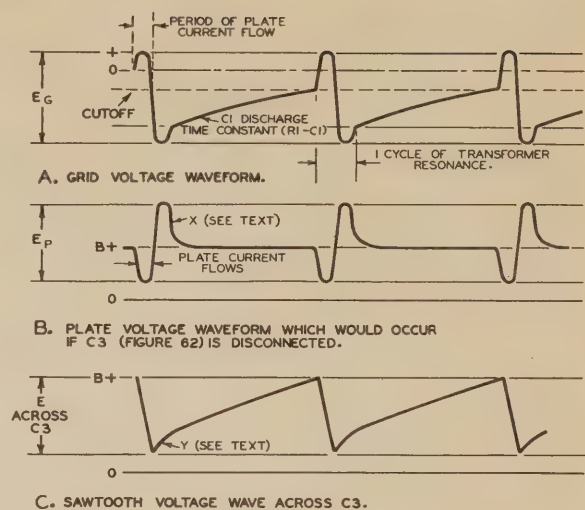 PERIOD OF PLATE
CURRENT FLOW
+
O
EG
CUTOFF
C1 DISCHARGE
TIME CONSTANT (R1-C1)
A. GRID VOLTAGE WAVEFORM.
1 CYCLE OF TRANSFORMER
RESONANCE.
X (SEE TEXT)
EP
B+
PLATE CURRENT
FLOWS
O
B. PLATE VOLTAGE WAVEFORM WHICH WOULD OCCUR
IF C3 (FIGURE 62) IS DISCONNECTED.
B+
E
ACROSS
C3
Y (SEE TEXT)
O
C. SAWTOOTH VOLTAGE WAVE ACROSS C3.